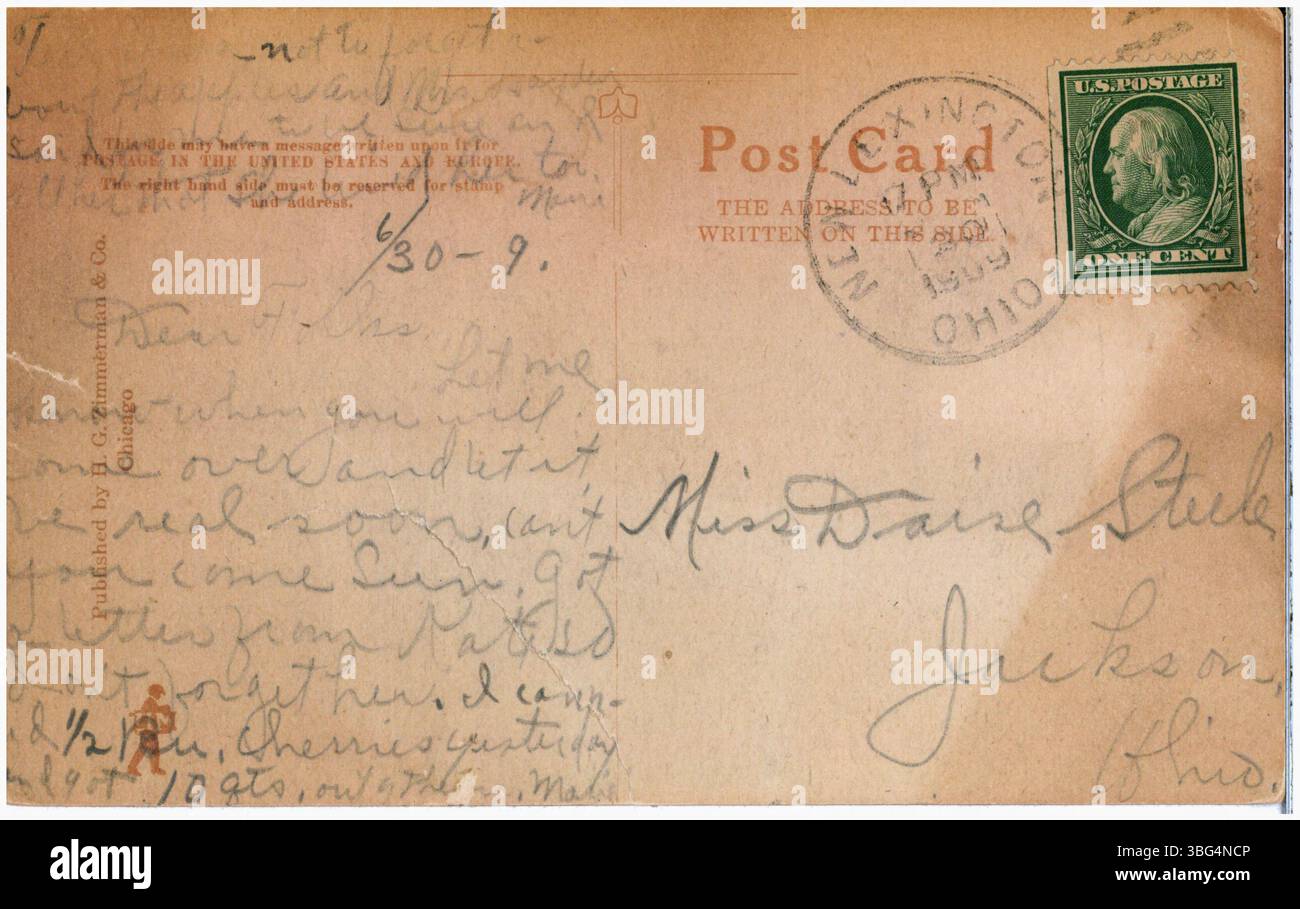 not to forget a-
bout the apples and Mrs
said
all
Marie
This side may have a message written upon it for
POSTAGE IN THE UNITED STATES AND EUROPE.
The right hand side must be reserved for stamp
and address.
6/30-9.
Dear Folks.
Let me
know when you will
come over and let it
be real soon, can't
you come Sun. Got
a letter from Kate so
don't forget her. I cann-
ed 1/2 Bu. Cherries yesterday
and got 10 qts. out of them.
Published by H. G. Zimmerman & Co.
Chicago
Post Card
THE ADDRESS TO BE
WRITTEN ON THIS SIDE.
NEW LEXINGTON
7 PM
1909
OHIO
U.S. POSTAGE
ONE CENT
Miss Daise Steele
Jackson,
Ohio.
alamy
Image ID: 3BG4NCP
www.alamy.com